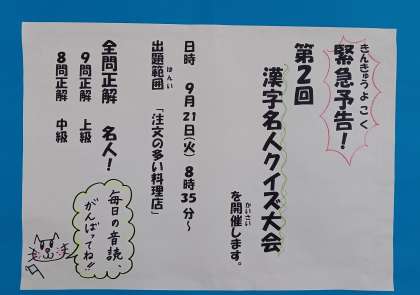 きんきゅうよこく
緊急予告！
第2回
漢字名人クイズ大会
かいさい
を開催します。
日時　9月21日(火)8時35分～
はんい
出題範囲　「注文の多い料理店」
全問正解　名人！
9問正解　上級
8問正解　中級
毎日の音読、
がんばってね!!